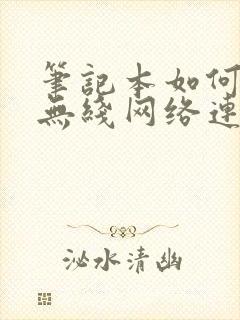 筆記本如何
無綫网络連
泌水清幽